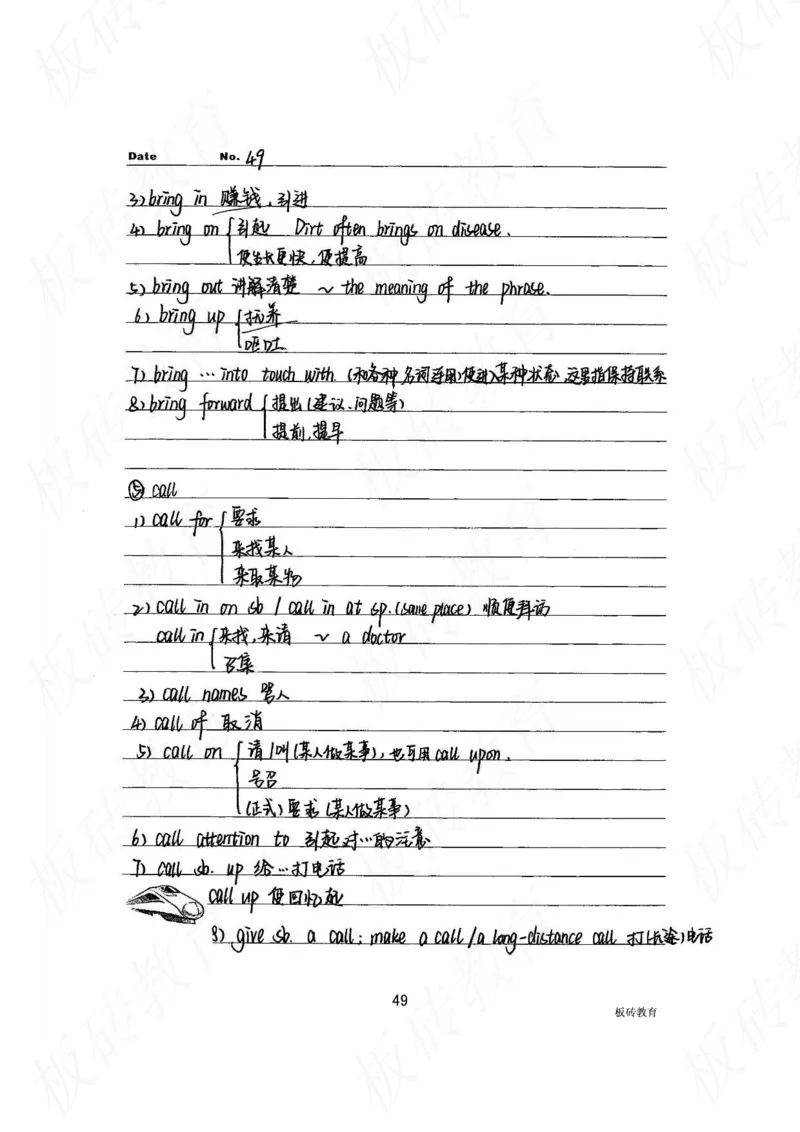 Date No. 49
3) bring in 赚钱,引进
4) bring on { 引起 Dirt often brings on disease.
使生长更快,使提高
5) bring out 讲解清楚 ~ the meaning of the phrase.
6) bring up { 抚养
呕吐
7) bring … into touch with (和各种名词连用)使进入某种状态,这里指保持联系
8) bring forward { 提出(建议、问题等)
提前,提早
⑤ call
1) call for { 要求
来找某人
来取某物
2) call in on sb / call in at sp. (some place) 顺便拜访
call in { 来找,来请 ~ a doctor
召集
3) call names 骂人
4) call of 取消
5) call on { 请/叫(某人做某事),也可用 call upon.
号召
(正式)要求(某人做某事)
6) call attention to 引起对…的注意
7) call sb. up 给…打电话
call up 使回忆起
8) give sb. a call; make a call / a long-distance call 打(长途)电话
49
板砖教育